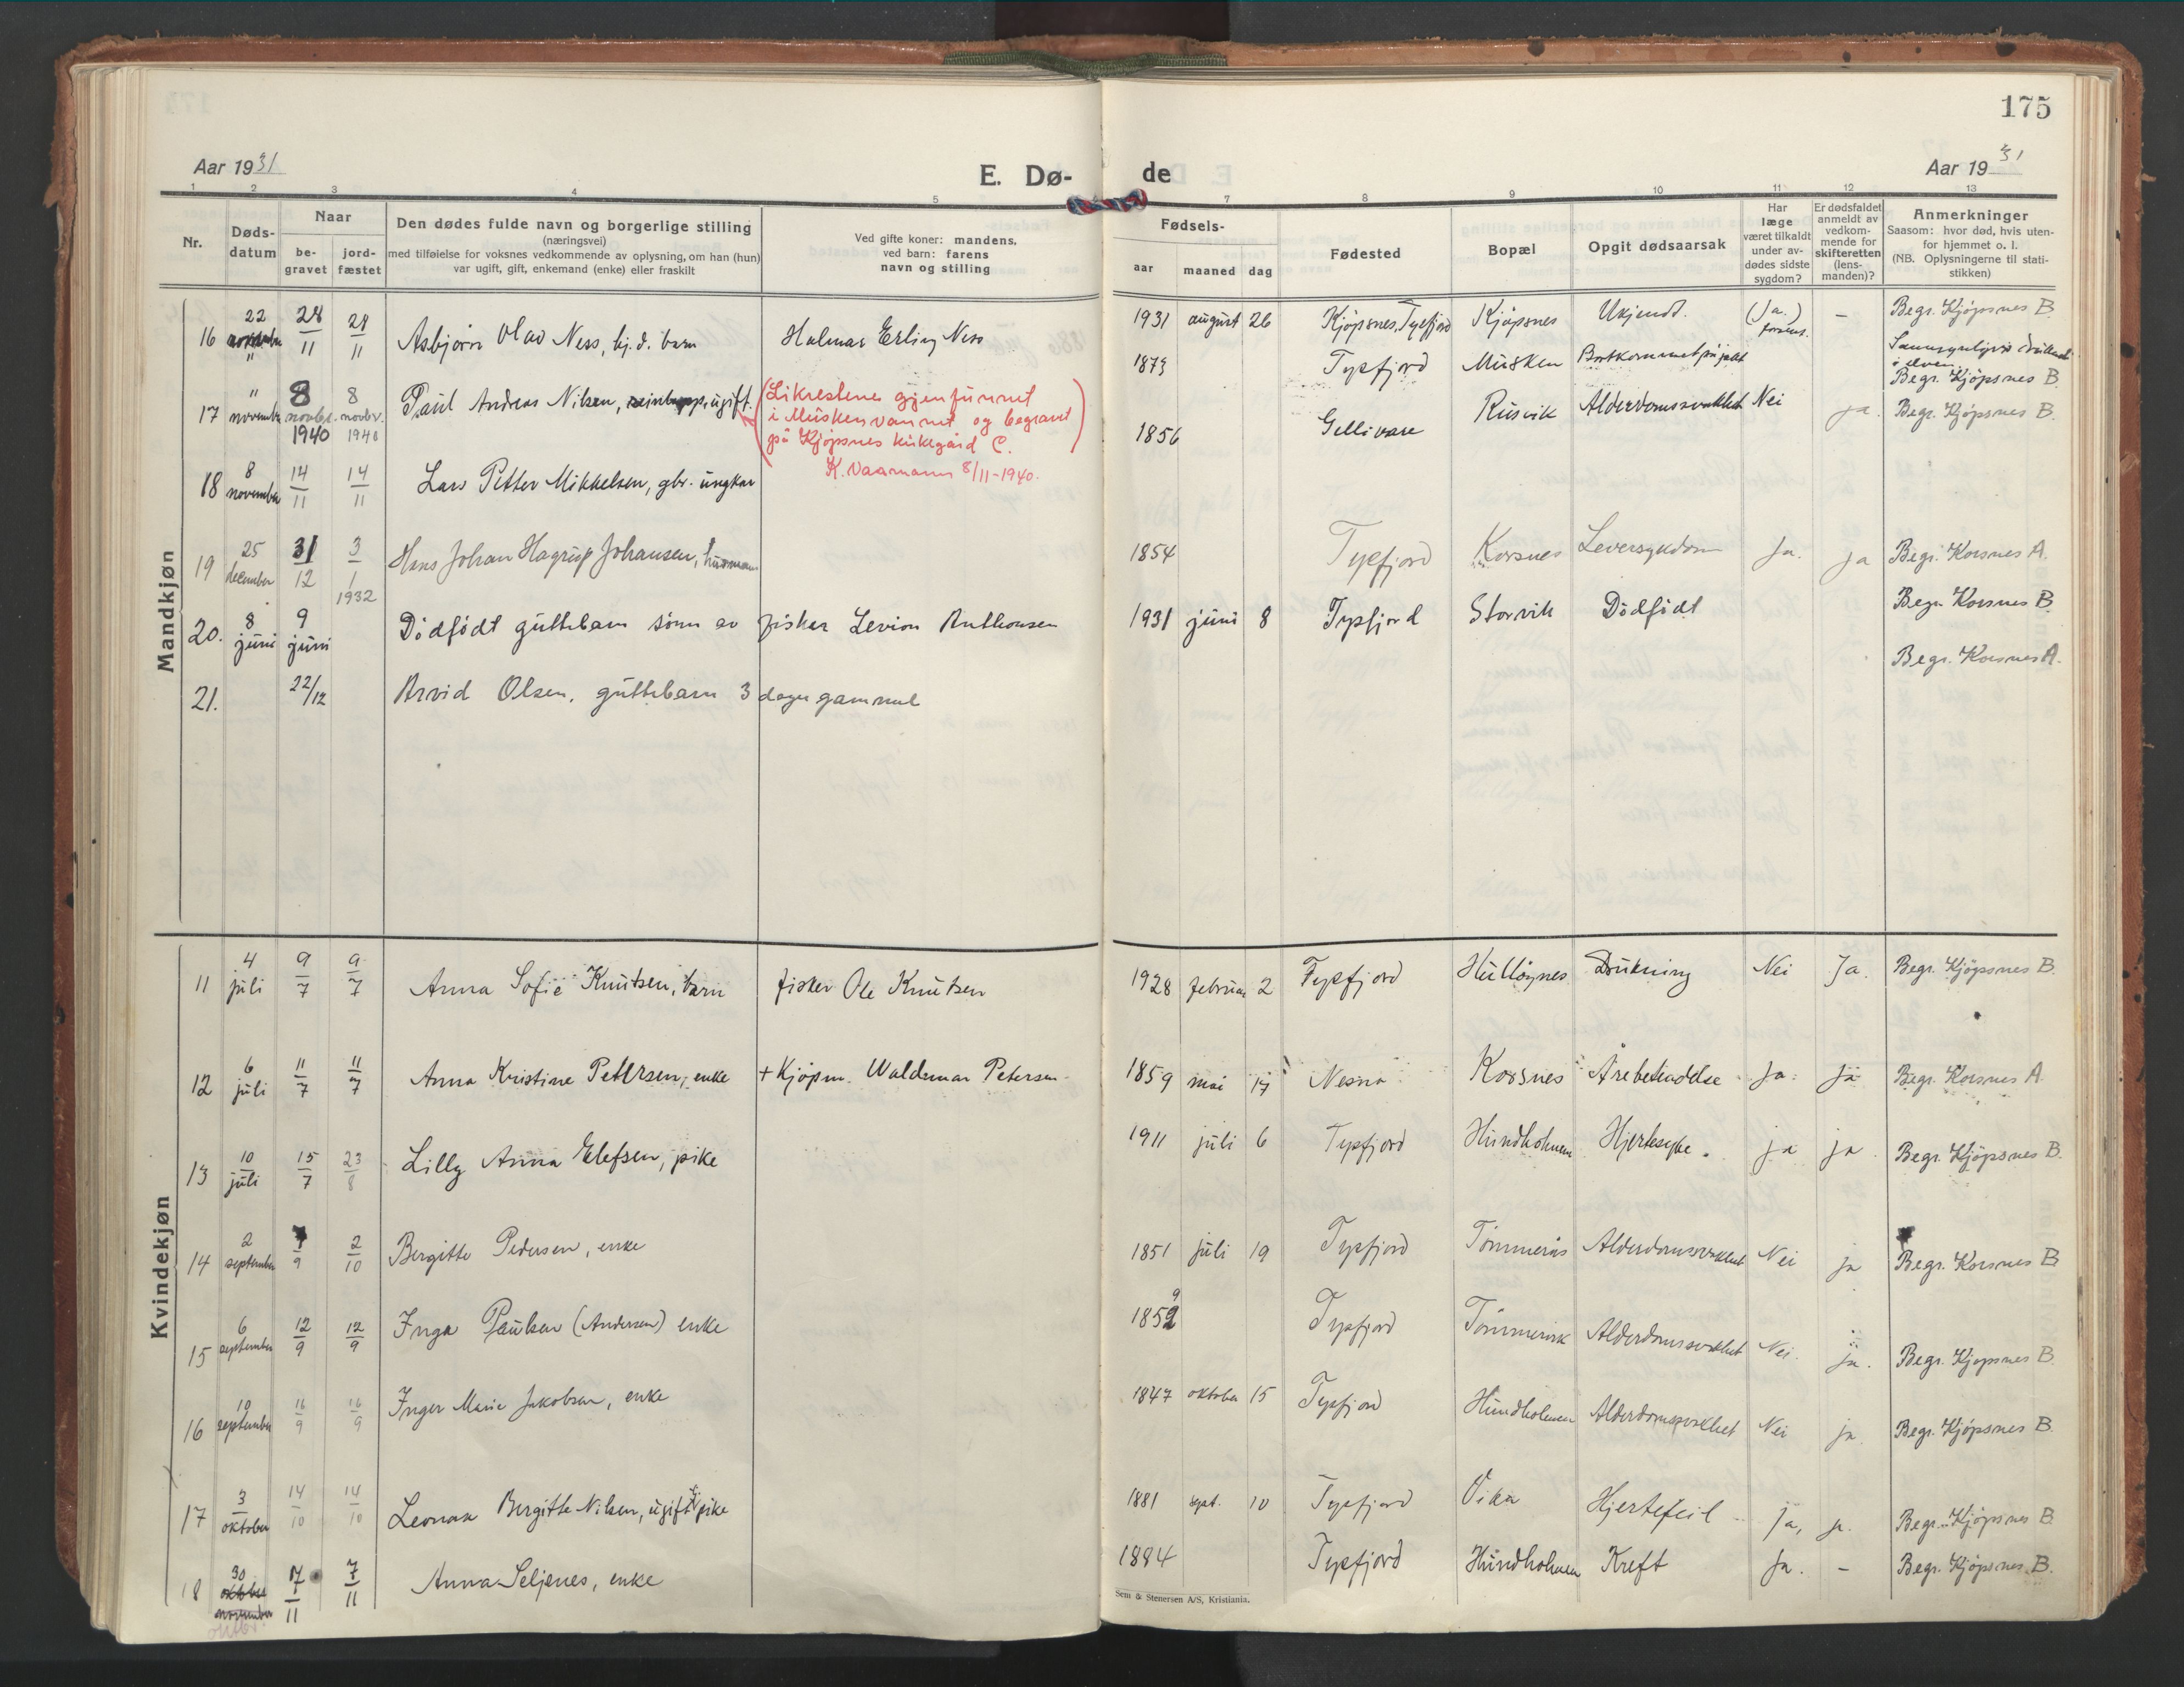 175
Aar 1931
E. Dø-
de
Aar 1931
1 2 3 4 5 7 8 9 10 11 12 13
Nr.
Døds-
datum
Naar
be-
gravet
jord-
fæstet
Den dødes fulde navn og borgerlige stilling
(næringsvei)
med tilføielse for voksnes vedkommende av oplysning, om han (hun)
var ugift, gift, enkemand (enke) eller fraskilt
Ved gifte koner: mandens,
ved barn: farens
navn og stilling
Fødsels-
aar maaned dag
Fødested
Bopæl
Opgit dødsaarsak
Har
læge
været tilkaldt
under av-
dødes sidste
sygdom?
Er dødsfaldet
anmeldt av
vedkom-
mende for
skifteretten
(lens-
manden)?
Anmerkninger
Saasom: hvor død, hvis uten-
for hjemmet o. l.
(NB. Oplysningerne til stati-
stikken)
Mandkjøn
16 22 november 28/11 28/11 Asbjørn Olav Ness, hj.d. barn Halmar Erling Ness 1931 august 26 Kjöpsnes, Tysfjord Kjöpsnes Ukjendt. (Ja.) – Begr. Kjöpsnes B.
17 " november 8 novbr. 1940 8 novbr. 1940 Paul Andreas Nilsen, ugift. 1873 Tysfjord Musken Bortkommet på jakt
i elven
Begr. Kjöpsnes B.
(Likrestene gjenfunnet
i Muskenvannet og begravet
på Kjöpsnes kirkegård C.
K. Vaamann 8/11-1940.
18 8 november 14/11 14/11 Lars Petter Mikkelsen, gbr. ungkar 1856 Gellivare Rusvik Alderdomssvakhet Nei ja. Begr. Kjöpsnes B.
19 25 december 31/12 3/1 1932 Hans Johan Hagrup Johansen, husmann 1854 Tysfjord Korsnes Leversykdom Ja. ja Begr. Korsnes A.
20. 8 juni 9 juni Dödfödt guttebarn sönn av fisker Levion Anthonsen 1931 juni 8 Tysfjord Storvik Dödfödt Begr. Korsnes B.
21. 22/12 Arvid Olsen, guttebarn 3 dager gammel Begr. Korsnes A.
Kvindekjøn
11 4 juli 9/7 9/7 Anna Sofie Knutsen, barn fisker Ole Knutsen 1928 februar 2 Tysfjord Hulløynes Drukning Nei Ja. Begr. Kjöpsnes B.
12 6 juli 11/7 11/7 Anna Kristine Petersen, enke + Kjöpm. Waldemar Petersen 1859 mai 17 Nesna Korsnes Årebetendelse Ja. ja Begr. Korsnes A.
13 10 juli 15/7 23/8 Lilly Anna Elefsen, pike 1911 juli 6 Tysfjord Hundholmen Hjertesyke. ja ja Begr. Kjöpsnes B.
14 2 september 7/9 2/10 Bergitte Pedersen, enke 1851 juli 19 Tysfjord Tömmerås Alderdomssvakhet Nei ja Begr. Korsnes B
15 6 september 12/9 12/9 Inga Paulsen (Andersen) enke 1852 9 Tysfjord Tömmervik Alderdomssvakhet Nei. ja. Begr. Kjöpsnes B.
16 10 september 16/9 16/9 Inger Marie Jakobsen, enke 1847 oktober 15 Tysfjord Hundholmen Alderdomssvakhet Nei ja. Begr. Kjöpsnes B.
17 3 oktober 14/10 14/10 Leonas Bergitte Nilsen, ugift pike 1881 sept. 10 Tysfjord Vika Hjertefeil ja, ja. Begr. Kjöpsnes B.
18 30 oktober november oktbr. 7/11 7/11 Anna Seljenes, enke 1884 Tysfjord Hundholmen Kreft Ja. – Begr. Kjöpsnes B.
Sem & Stenersen A/S, Kristiania.